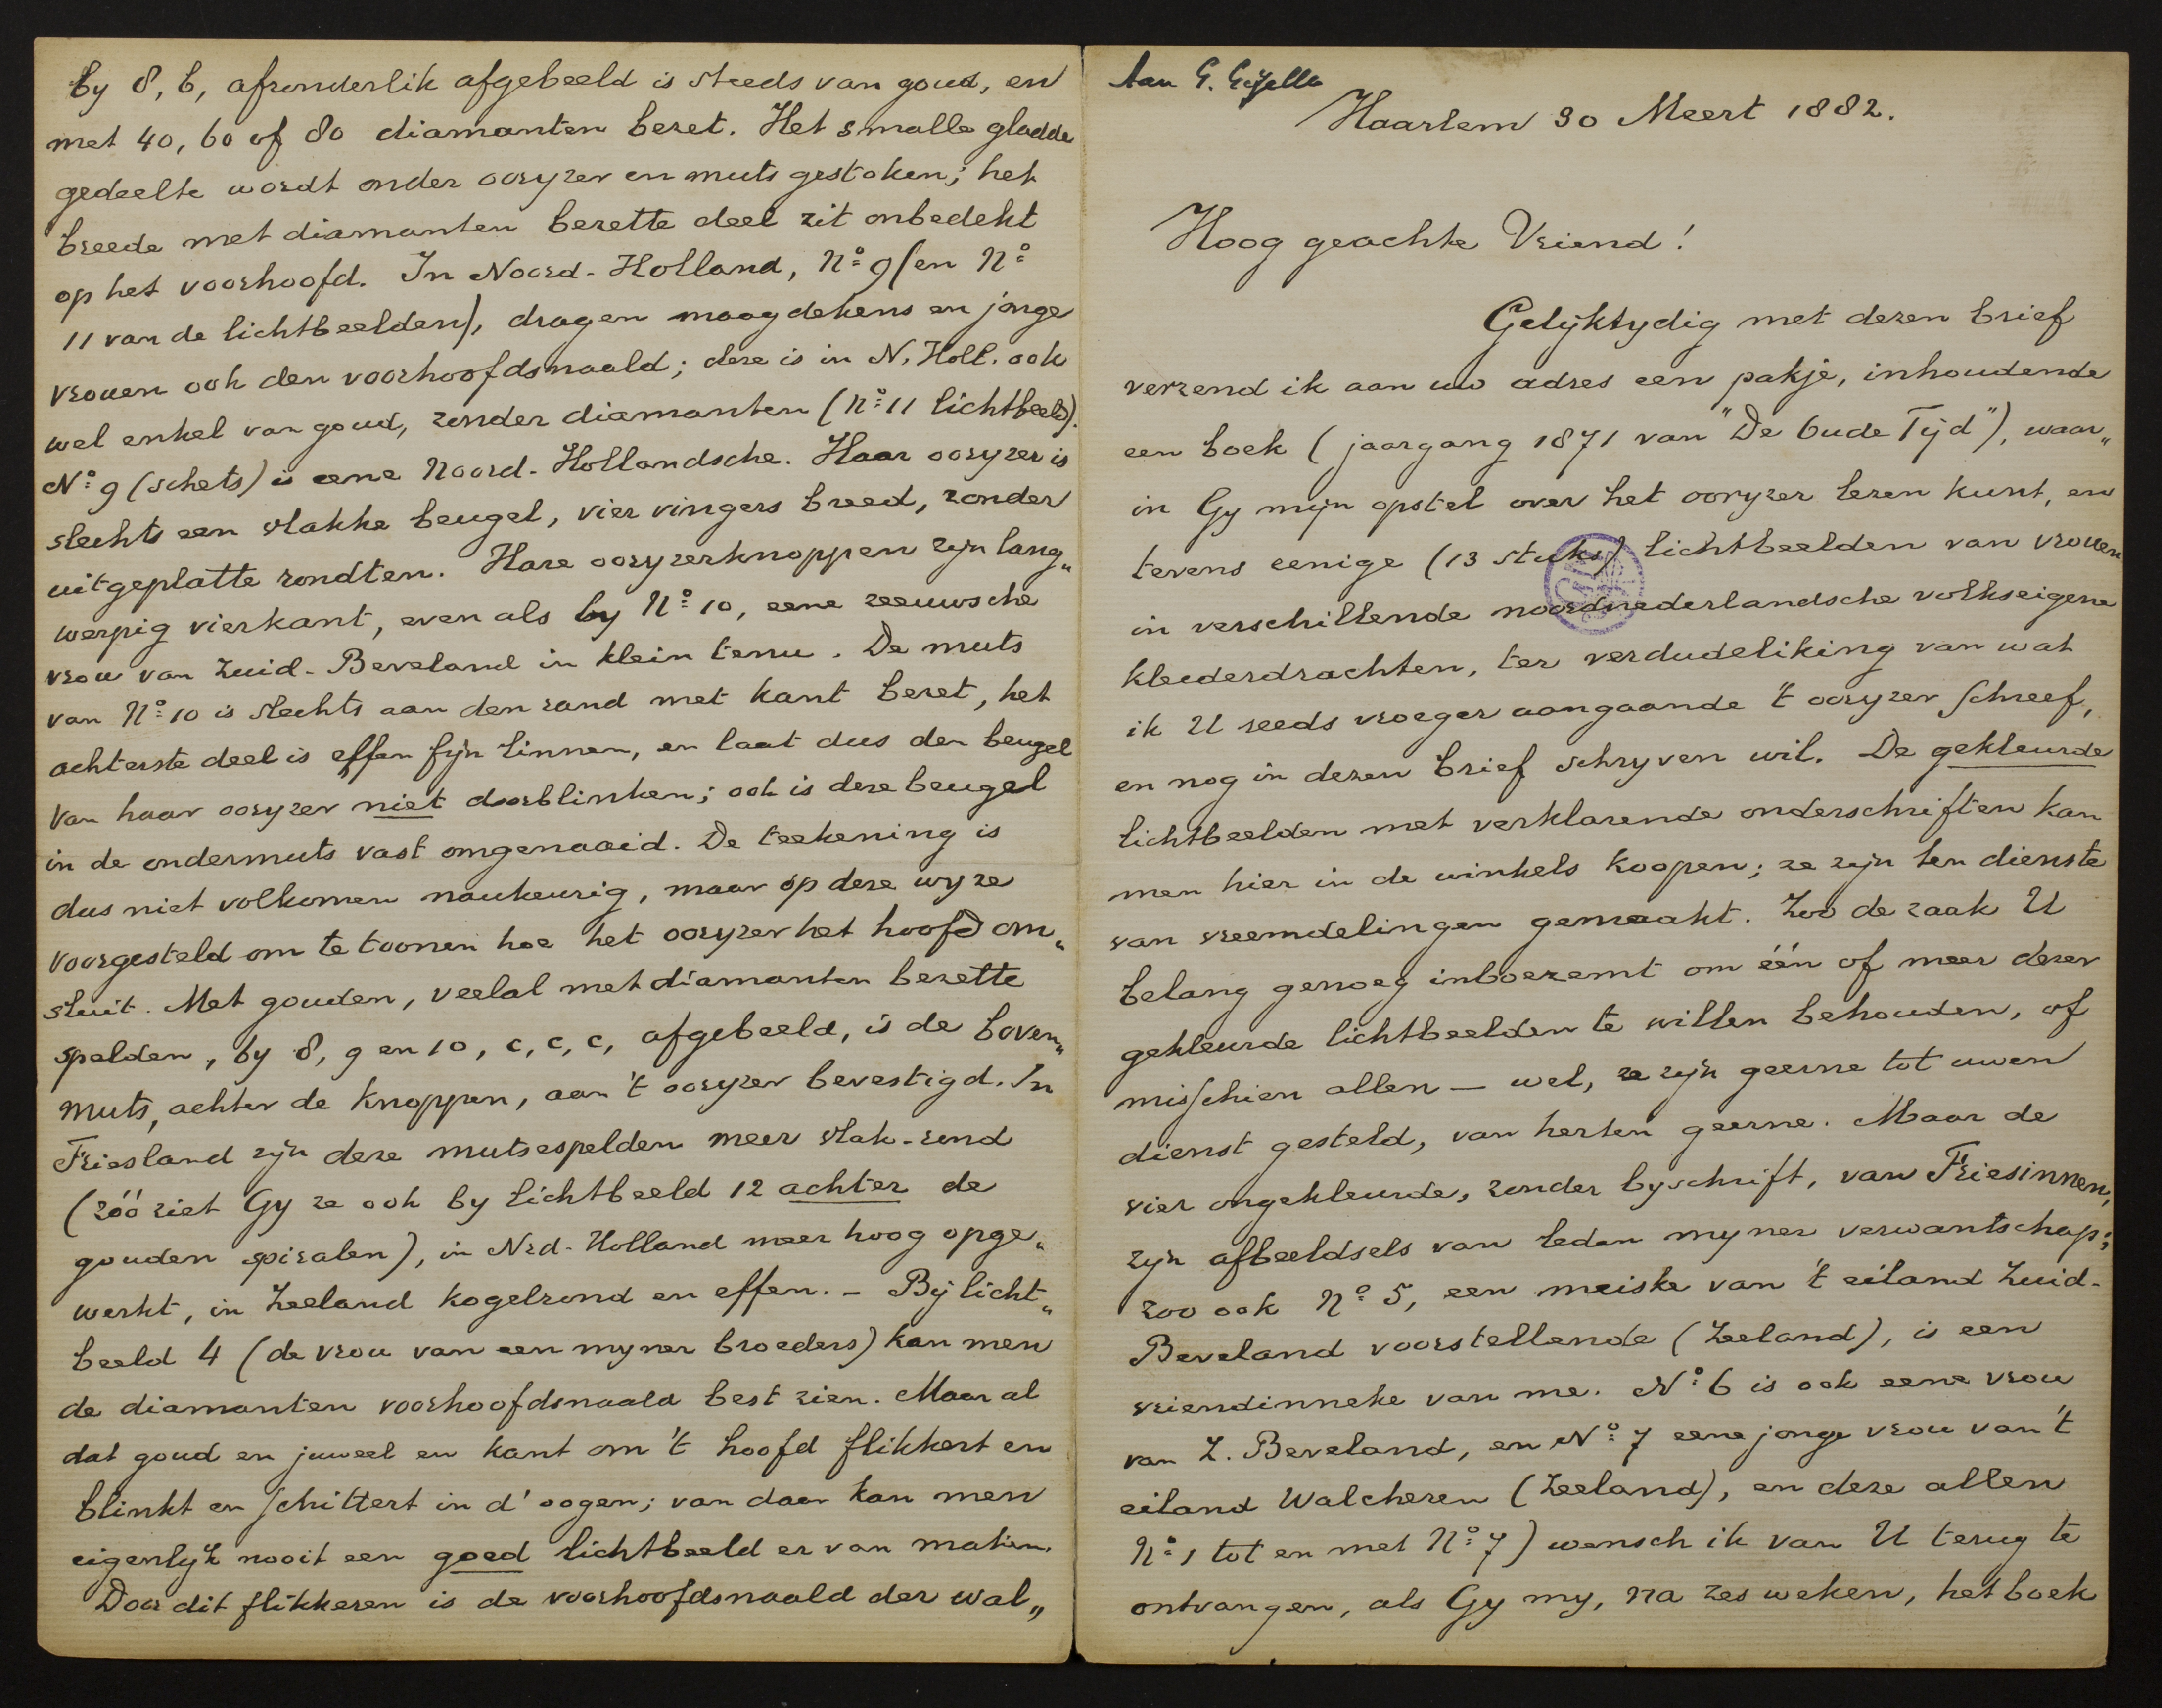 by 8, b, afzonderlik afgebeeld is steeds van goud, en
met 40, 60 of 80 diamanten bezet. Het smalle gladde
gedeelte wordt onder ooryzer en muts gestoken; het
breede met diamanten bezette deel zit onbedekt
op het voorhoofd. In Noord-Holland, No 9 (en No
11 van de lichtbeelden), dragen maagdekens en jonge
vrouen ook den voorhoofdsnaald; deze is in N. Holl. ook
wel enkel van goud, zonder diamanten (No 11 lichtbeeld).
No 9 (schets) is eene Noord-Hollandsche. Haar ooryzer is
slechts een vlakke beugel, vier vingers breed, zonder
uitgeplatte rondten. Hare ooryzerknoppen zyn lang„
werpig vierkant, even als by No 10, eene zeeuwsche
vrou van Zuid-Beveland in klein tenu. De muts
van No 10 is slechts aan den rand met kant bezet, het
achterste deel is effen fyn linnen, en laat dus den beugel
van haar ooryzer niet doorblinken; ook is deze beugel
in de ondermuts vast omgenaaid. De teekening is
dus niet volkomen naukeurig, maar op deze wyze
voorgesteld om te toonen hoe het ooryzer het hoofd om„
sluit. Met gouden, veelal met diamanten bezette
spelden, by 8, 9 en 10, c, c, c, afgebeeld, is de boven„
muts, achter de knoppen, aan 't ooryzer bevestigd. In
Friesland zyn deze mutsespelden meer vlak-rond
(zóó ziet Gy ze ook by lichtbeeld 12 achter de
gouden spiralen), in Nrd-Holland meer hoog opge„
werkt, in Zeeland kogelrond en effen. – By licht„
beeld 4 (de vrou van een myner broeders) kan men
de diamanten voorhoofdsnaald best zien. Maar al
dat goud en juweel en kant om 't hoofd flikkert en
blinkt en schittert in d' oogen; van daar kan men
eigenlyk nooit een goed lichtbeeld er van maken.
Door dit flikkeren is de voorhoofdsnaald der wal„
Aan G. Gezelle
Haarlem 30 Meert 1882.
Hoog geachte Vriend!
Gelyktydig met dezen brief
verzend ik aan uw adres een pakje, inhoudende
een boek (jaargang 1871 van "De Oude Tyd"), waar„
in Gy myn opstel over het ooryzer lezen kunt, en
tevens eenige (13 stuks) lichtbeelden van vrouen
in verschillende noordnederlandsche volkseigene
kleederdrachten, ter verdudeliking van wat
ik U reeds vroeger aangaande 't ooryzer schreef,
en nog in dezen brief schryven wil. De gekleurde
lichtbeelden met verklarende onderschriften kan
men hier in de winkels koopen; ze zyn ten dienste
van vreemdelingen gemaakt. Zoo de zaak U
belang genoeg inboezemt om één of meer dezer
gekleurde lichtbeelden te willen behouden, of
misschien allen — wel, ze zyn geerne tot uwen
dienst gesteld, van herten geerne. Maar de
vier ongekleurde, zonder byschrift, van Friesinnen,
zyn afbeeldsels van leden myner verwantschap;
zoo ook No 5, een meiske van 't eiland Zuid-
Beveland voorstellende (Zeeland), is een
vriendinneke van me. No 6 is ook eene vrou
van Z. Beveland, en No 7 eene jonge vrou van 't
eiland Walcheren (Zeeland), en deze allen
No 1 tot en met No 7) wensch ik van U terug te
ontvangen, als Gy my, na zes weken, het boek